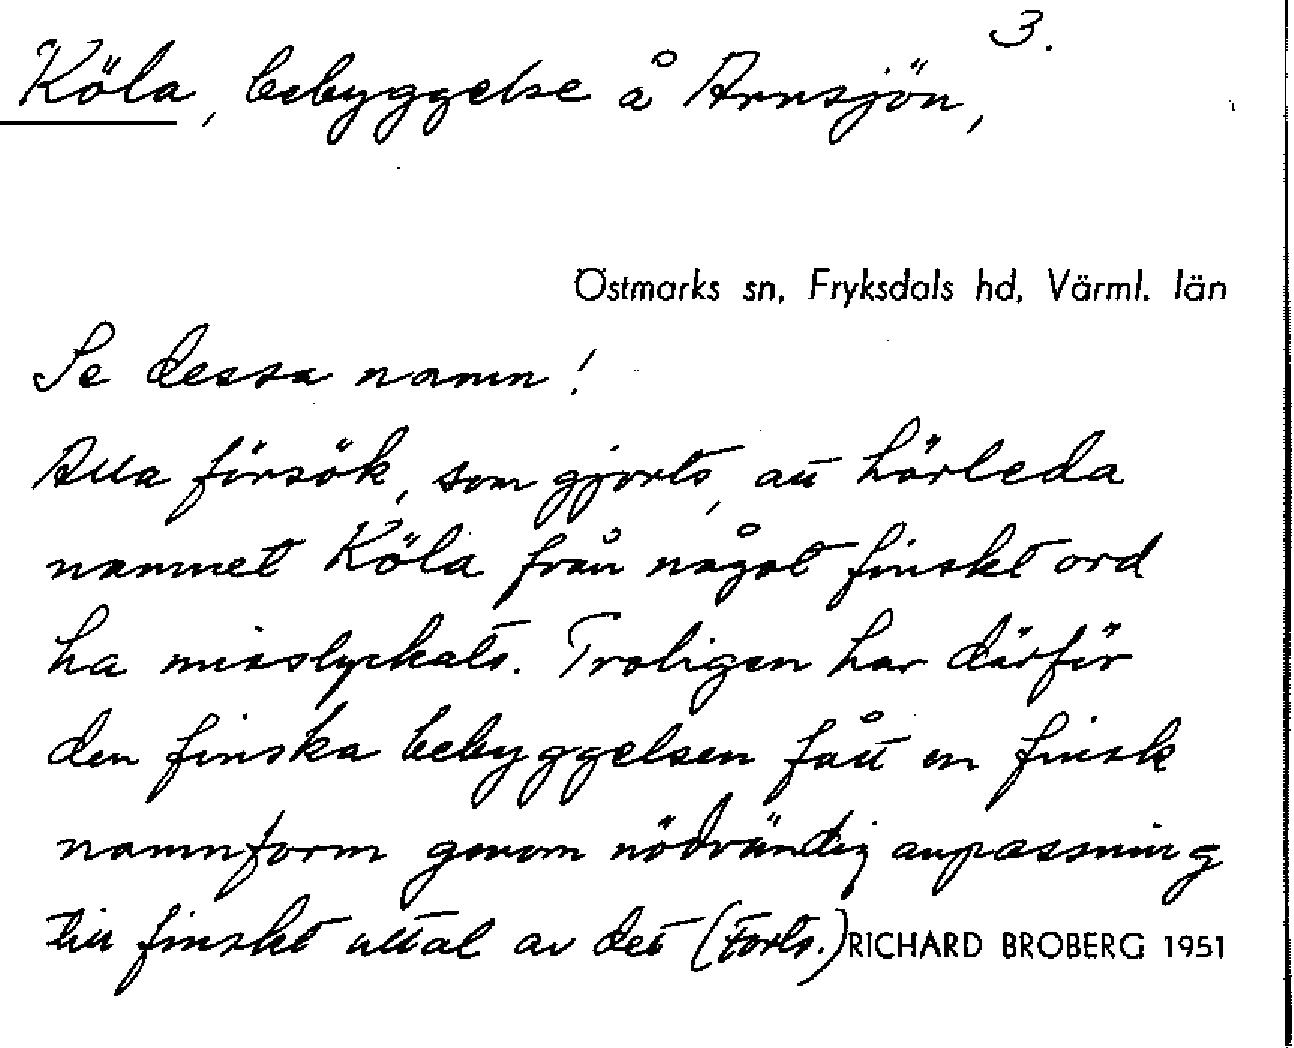 3.
Köla, bebyggelse å Arnsjön,
Östmarks sn, Fryksdals hd, Värml. län
Se dessa namn!
Alla försök, som gjorts, att härleda
namnet Köla från något finskt ord
ha misslyckats. Troligen har därför
den finska bebyggelsen fått en finsk
namnform genom nödvändig anpassning
till finskt uttal av det (Forts.) RICHARD BROBERG 1951